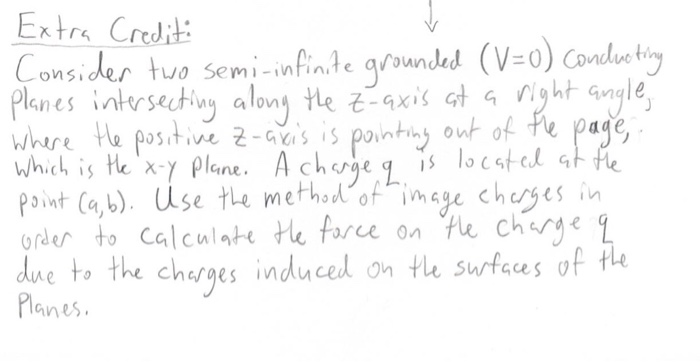 Extra Credit:
Consider two semi-infinite grounded (V=0) conducting
planes intersecting along the z-axis at a right angle,
where the positive z-axis is pointing out of the page,
which is the x-y plane. A charge q is located at the
point (a,b). Use the method of image charges in
order to calculate the force on the charge q
due to the charges induced on the surfaces of the
planes.